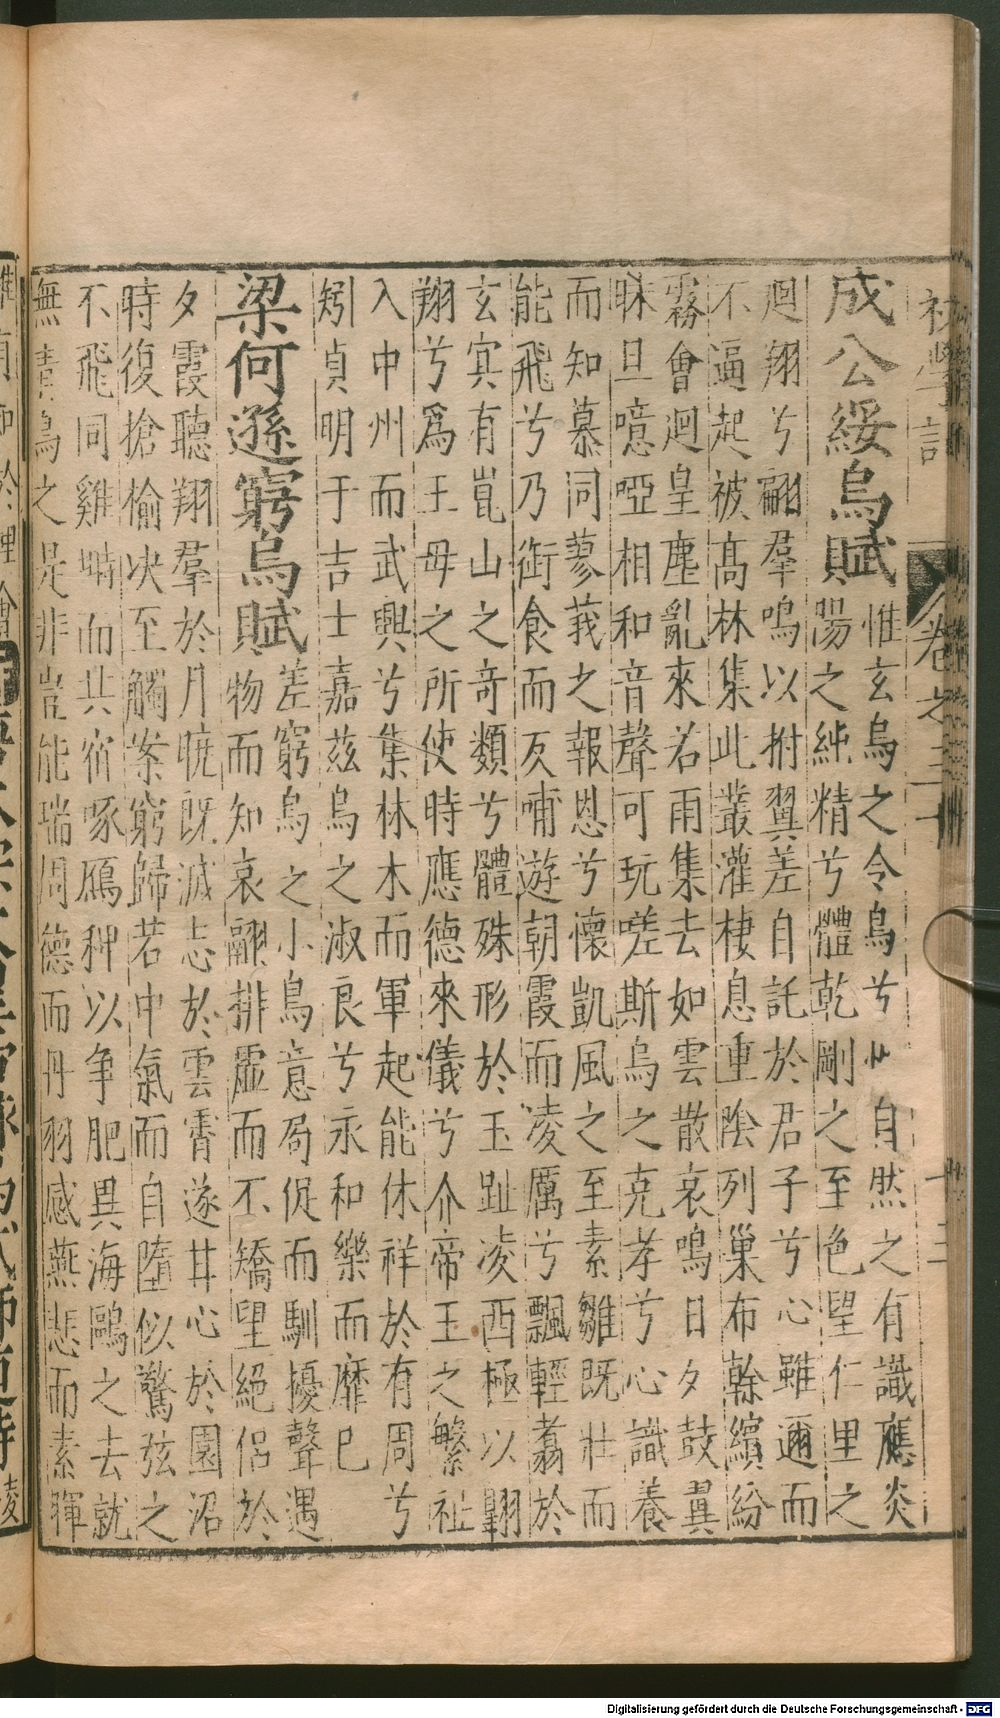 初學記 卷之三十
成公綏烏賦
惟玄烏之令烏兮自然之有識應炎
陽之純精兮體乾剛之至色望仁里之
廻翔兮翩羣鳴以拊翼差自託於君子兮心雖邇而
不逼起被髙林集此叢灌棲息重陰列巢布幹繽紛
霧會迴皇塵亂來若雨集去如雲散哀鳴日夕鼓翼
昧旦噫啞相和音聲可玩嗟斯烏之克孝兮心識養
而知慕同蓼莪之報恩兮懷凱風之至素雛既壯而
能飛兮乃銜食而反哺遊朝霞而凌厲兮飄輕翥於
玄冥有崑山之竒類兮體殊形於玉趾凌西極以翶
翔兮爲王母之所使時應德來儀兮介帝王之繁祉
入中州而武興兮集林木而軍起能休祥於有周兮
矧貞明于吉士嘉茲烏之淑良兮永和樂而靡巳
梁何遜窮烏賦
差窮烏之小鳥意局促而馴擾聲遇
物而知哀翮排虛而不矯望絕侶於
夕霞聽翔羣於月曉既滅志於雲霄遂甘心於園沼
時復搶榆决至觸案窮歸若中氣而自墮似驚弦之
不飛同雞塒而共宿啄鴈稗以爭肥異海鷗之去就
無青鳥之是非豈能瑞周德而丹羽感燕悲而素暉
Digitalisierung gefördert durch die Deutsche Forschungsgemeinschaft - DFG